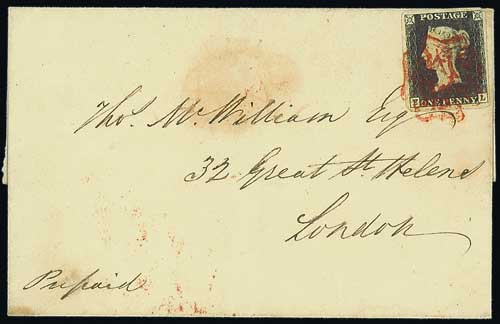 POSTAGE
E ONE PENNY L
Thos. Mc.William Esq
32 Great St. Helens
London
Prepaid